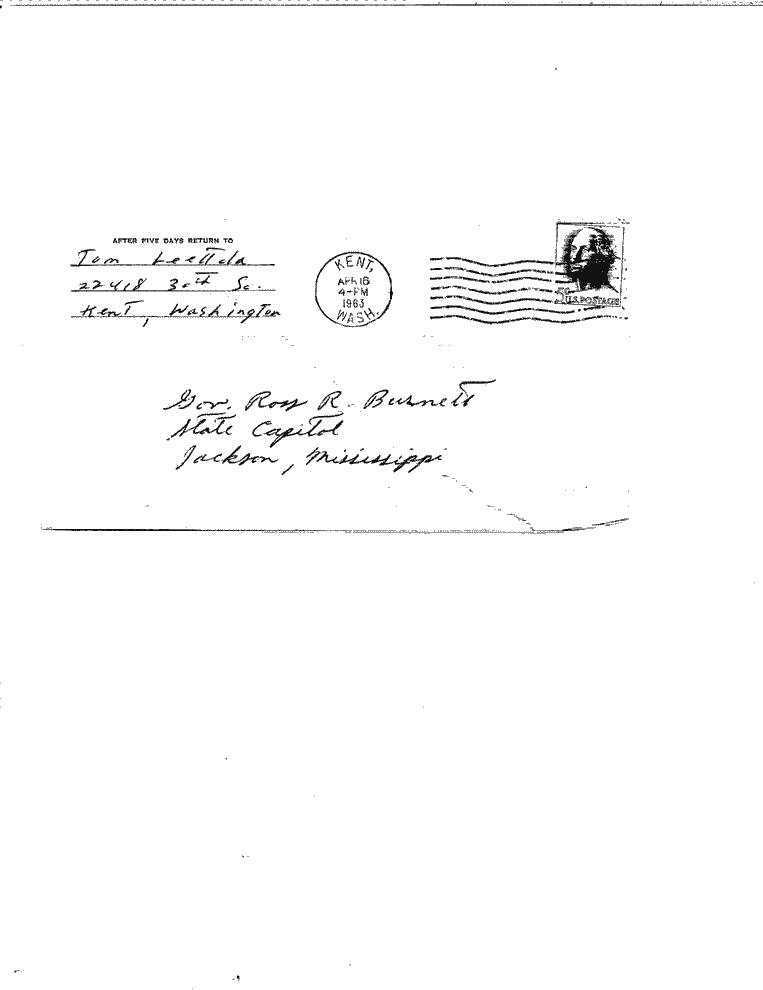 AFTER FIVE DAYS RETURN TO
Tom
22418 30th So.
Kent, Washington
KENT,
APR 16
4-PM
1963
WASH.
5¢
U.S. POSTAGE
Gov. Ross R. Burnett
State Capitol
Jackson, Mississippi